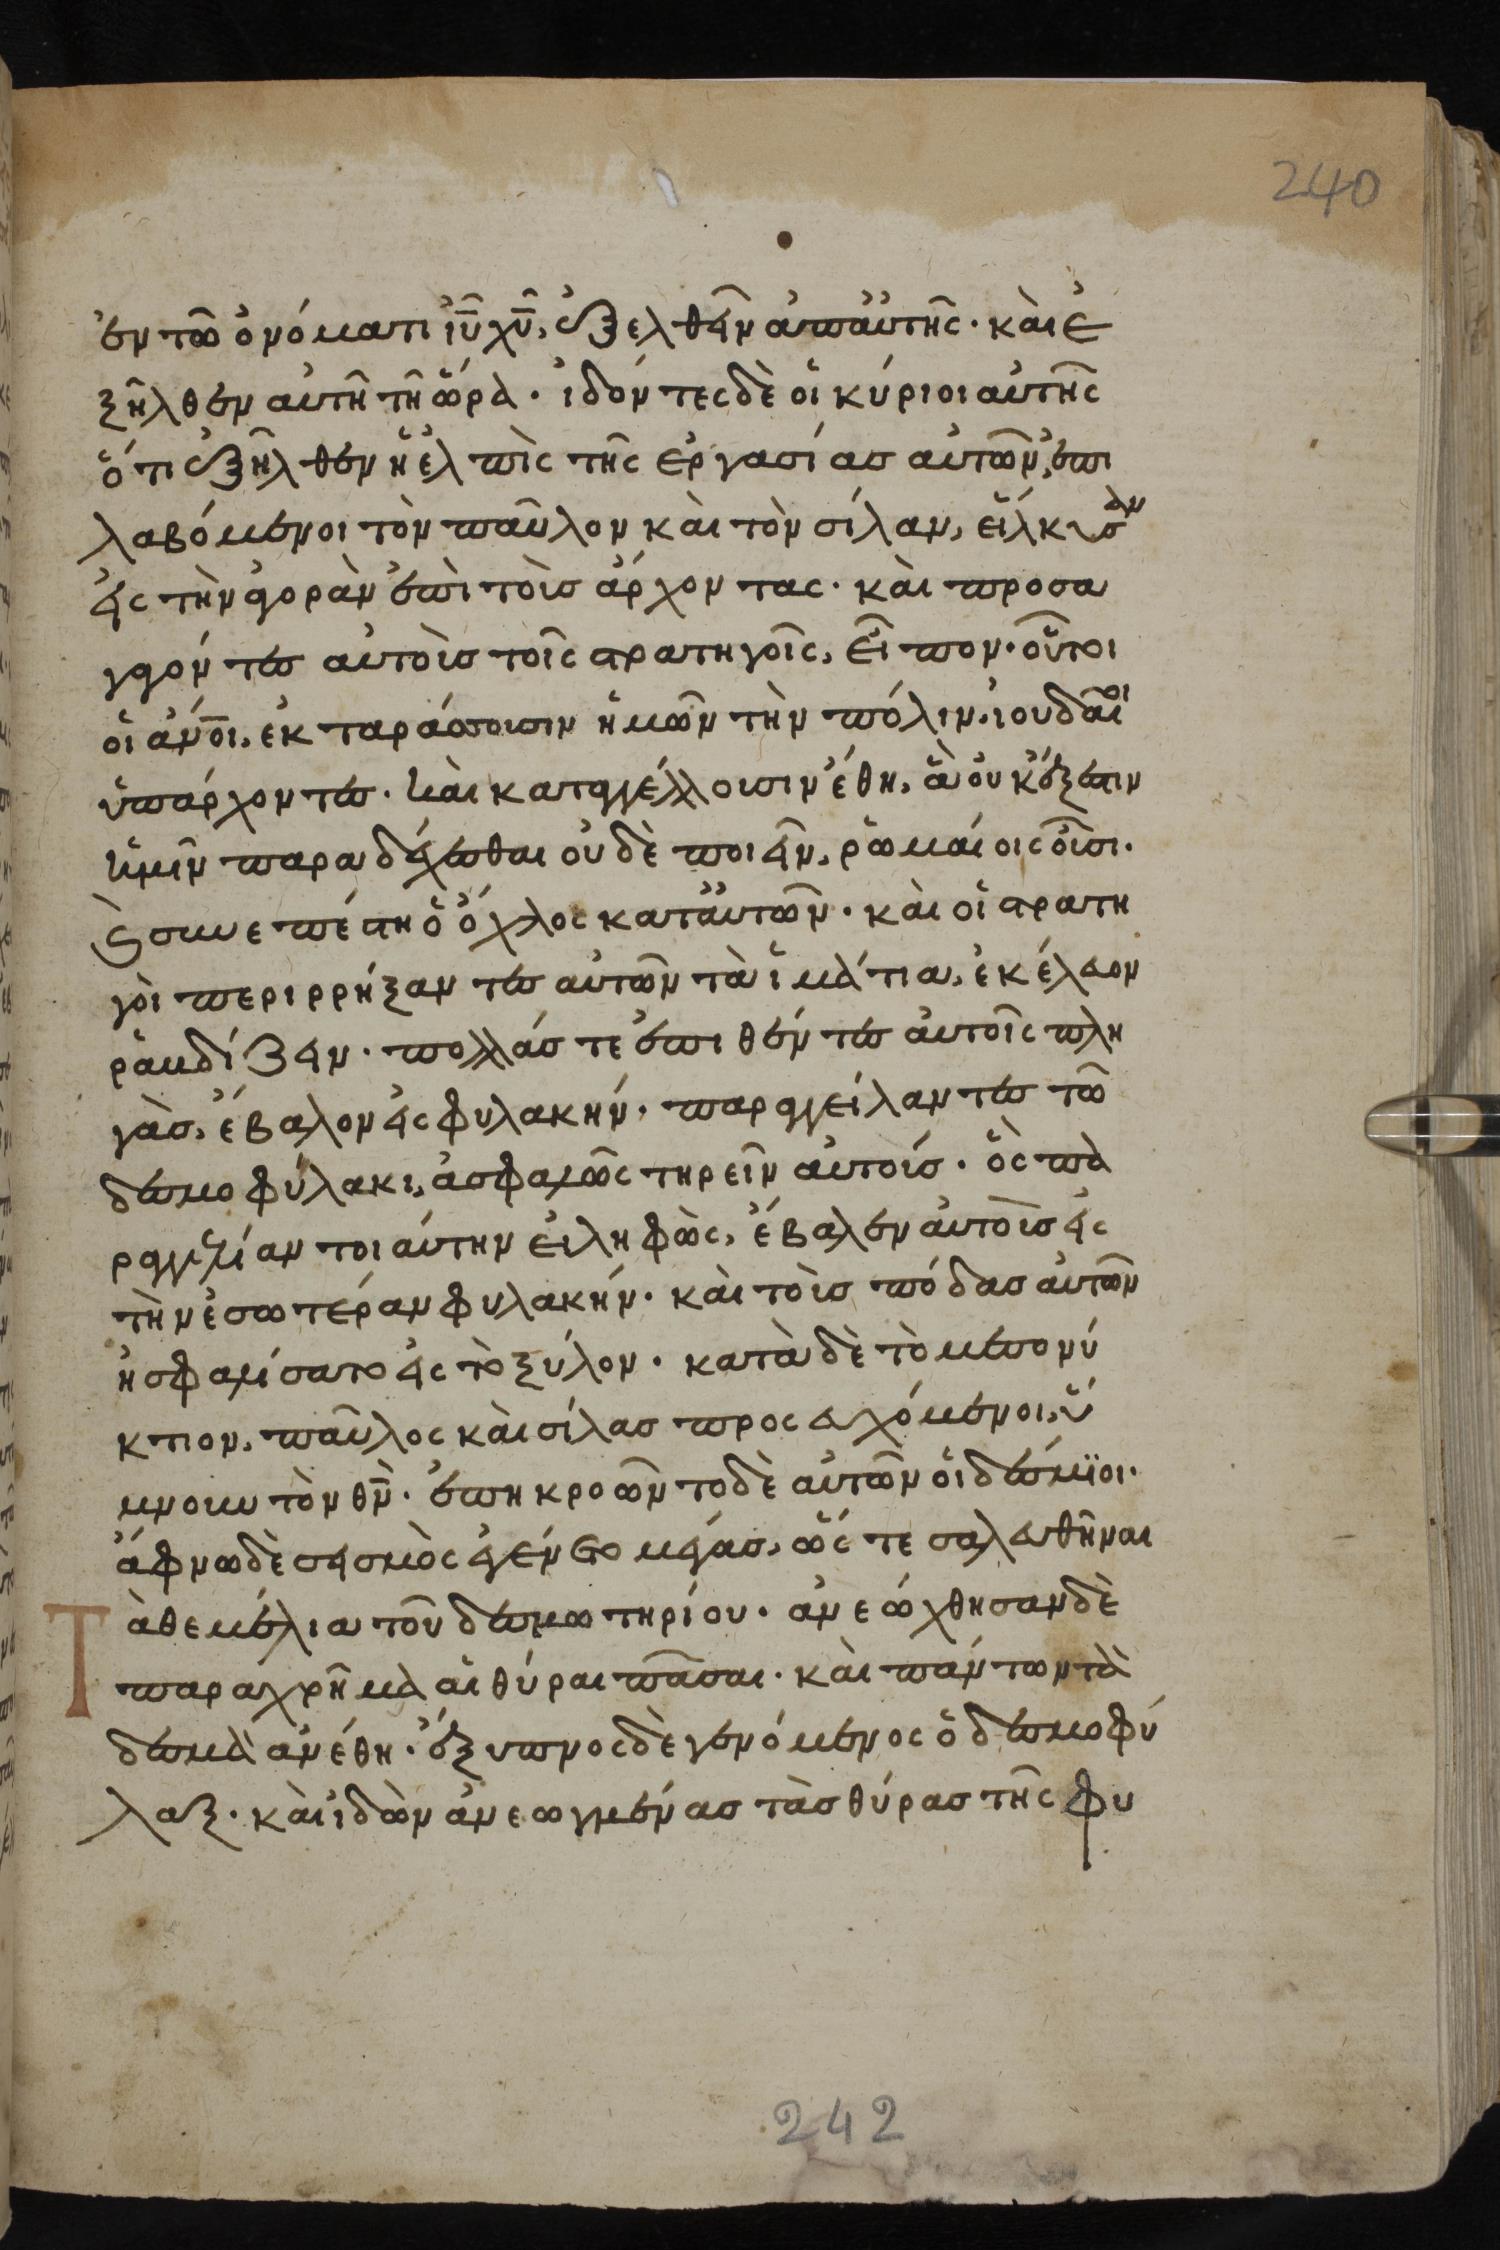 240
ἐν τῶ ὀνόματι ἰῦ χῦ, ἐξελθεῖν ἀπ' αὐτῆς · καὶ ἐ
ξῆλθεν αὐτῆ τῆ ὥρα · ἰδόντες δὲ οἱ κύριοι αὐτῆς
ὅτι ἐξῆλθεν ἡ ἐλπὶς τῆς ἐργασίας αὐτῶν, ἐπι
λαβόμενοι τὸν παῦλον καὶ τὸν σίλαν, εἵλκυσαν
εἰς τὴν ἀγορὰν ἐπὶ τοὺς ἄρχοντας · καὶ προσα
γαγόντες αὐτοὺς τοῖς στρατηγοῖς, εἶπον · οὗτοι
οἱ ἄνοι, ἐκταράσσουσιν ἡμῶν τὴν πόλιν, ἰουδαῖοι
ὑπάρχοντες · καὶ καταγγέλλουσιν ἔθη, ἃ οὐκ ἔξεστιν
ἡμῖν παραδέχεσθαι οὐδὲ ποιεῖν, ῥωμαίοις οὖσι ·
καὶ συνεπέστη ὁ ὄχλος κατ' αὐτῶν · καὶ οἱ στρατη
γοὶ περιρρήξαντες αὐτῶν τὰ ἱμάτια, ἐκέλευον
ῥαβδίζειν · πολλάς τε ἐπιθέντες αὐτοῖς πλη
γὰς, ἔβαλον εἰς φυλακήν · παραγγείλαντες τῶ
δεσμοφύλακι, ἀσφαλῶς τηρεῖν αὐτούς · ὃς πα
ραγγελίαν τοιαύτην εἰληφὼς, ἔβαλεν αὐτοὺς εἰς
τὴν ἐσωτέραν φυλακήν · καὶ τοὺς πόδας αὐτῶν
ἠσφαλίσατο εἰς τὸ ξύλον · κατὰ δὲ τὸ μεσονύ
κτιον, παῦλος καὶ σίλας προσευχόμενοι, ὕ
μνουν τὸν θν · ἐπηκροῶντο δὲ αὐτῶν οἱ δέσμϊοι ·
ἄφνω δὲ σεισμὸς ἐγένετο μέγας, ὥστε σαλευθῆναι
Τὰ θεμέλια τοῦ δεσμωτηρίου · ἀνεώχθησαν δὲ
παραχρῆμα αἱ θύραι πᾶσαι · καὶ πάντων τὰ
δεσμὰ ἀνέθη · ἔξυπνος δὲ γενόμενος ὁ δεσμοφύ
λαξ · καὶ ἰδὼν ἀνεωγμένας τὰς θύρας τῆς φυ
242